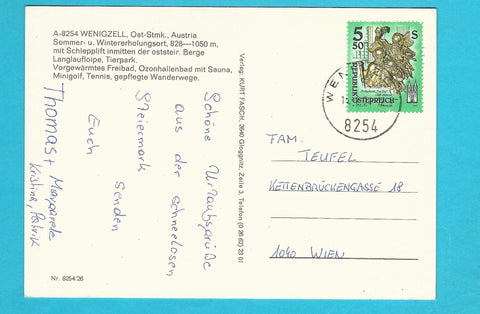 A-8254 WENIGZELL, Ost-Stmk., Austria
Sommer- u. Wintererholungsort, 828—1050 m,
mit Schlepplift inmitten der oststeir. Berge
Langlaufloipe, Tierpark.
Vorgewärmtes Freibad, Ozonhallenbad mit Sauna,
Minigolf, Tennis, gepflegte Wanderwege.
Schöne Urlaubsgrüße
aus der schneelosen
Steiermark
senden
Euch
Thomas + Margarete
Kristina, Patrik
Nr. 8254/26
Verlag: KURT FASCH, 2640 Gloggnitz, Zeile 3, Telefon (0 26 62) 23 01
5 50 S
REPUBLIK
ÖSTERREICH
WENI
8254
FAM.
TEUFEL
KETTENBRÜCKENGASSE 18
1040 WIEN